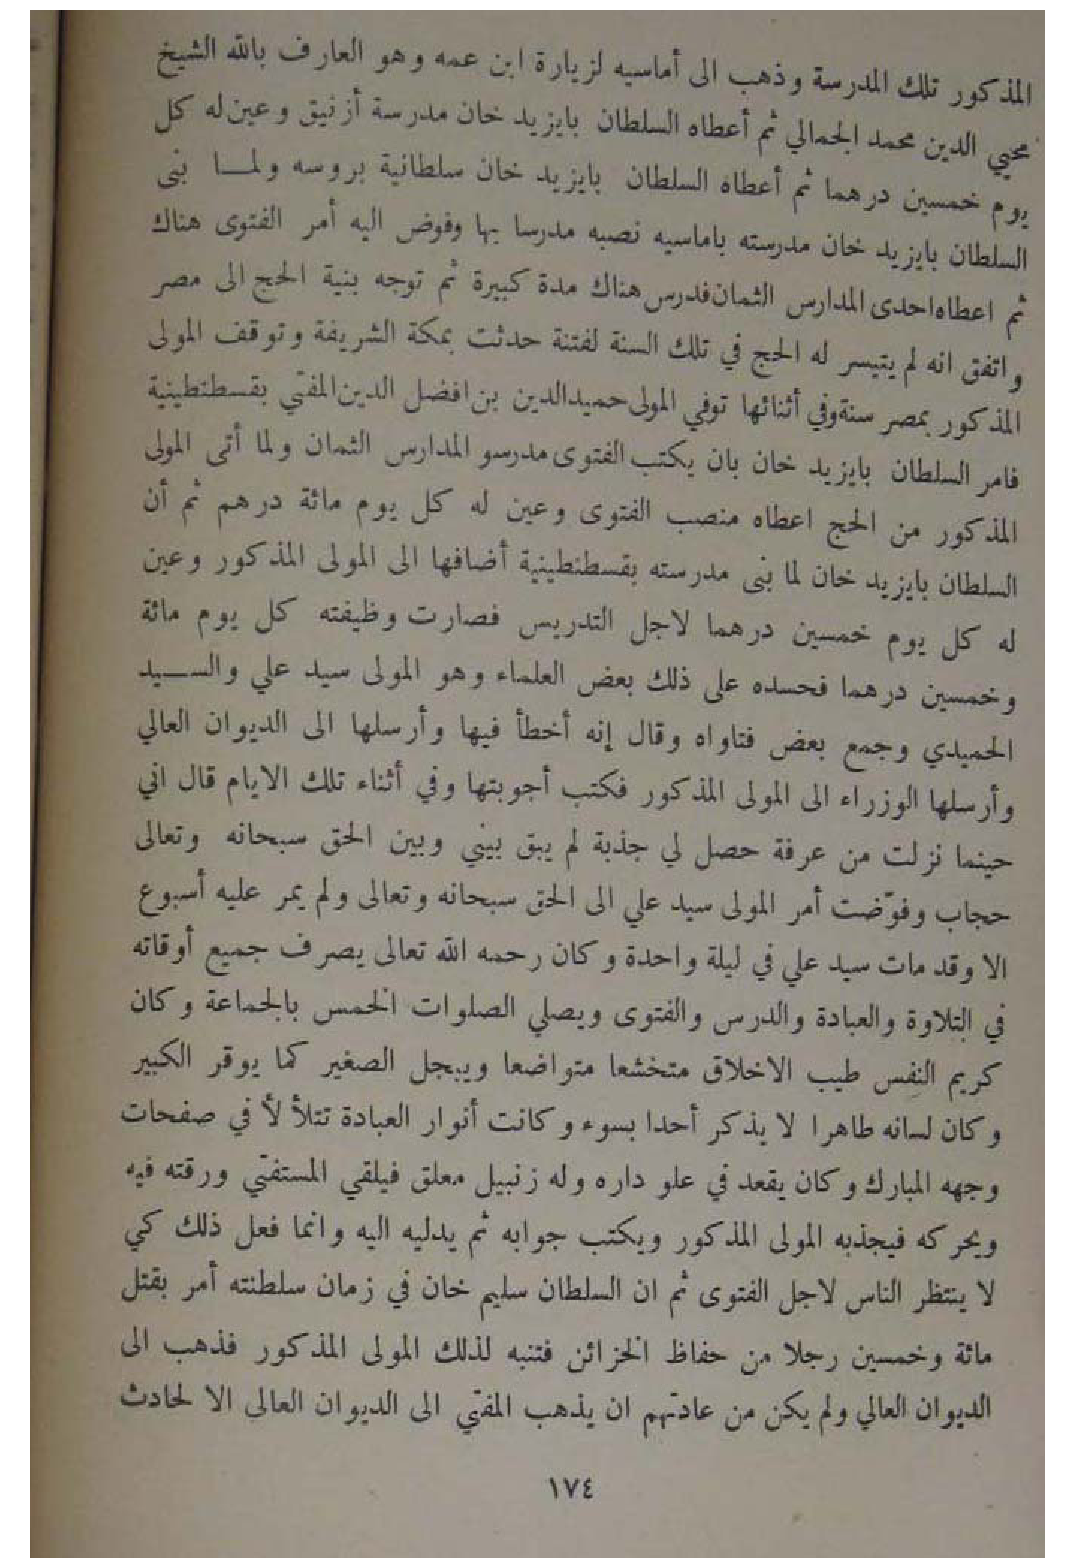 المذكور تلك المدرسة وذهب الى أماسيه لزيارة ابن عمه وهو العارف بالله الشيخ
محيي الدين محمد الجمالي ثم أعطاه السلطان بايزيد خان مدرسة أزنيق وعين له كل
يوم خمسين درهما ثم أعطاه السلطان بايزيد خان سلطانية بروسه ولمــا بنى
السلطان بايزيد خان مدرسته باماسيه نصبه مدرسا بها وفوض اليه أمر الفتوى هناك
ثم اعطاه احدى المدارس الثمان فدرس هناك مدة كبيرة ثم توجه بنية الحج الى مصر
واتفق انه لم يتيسر له الحج في تلك السنة لفتنة حدثت بمكة الشريفة وتوقف المولى
المذكور بمصر سنة وفي أثنائها توفي المولى حميدالدين بن افضل الدين المفتي بقسطنطينية
فامر السلطان بايزيد خان بان يكتب الفتوى مدرسو المدارس الثمان ولما أتى المولى
المذكور من الحج اعطاه منصب الفتوى وعين له كل يوم مائة درهم ثم أن
السلطان بايزيد خان لما بنى مدرسته بقسطنطينية أضافها الى المولى المذكور وعين
له كل يوم خمسين درهما لاجل التدريس فصارت وظيفته كل يوم مائة
وخمسين درهما فحسده على ذلك بعض العلماء وهو المولى سيد علي والســيد
الحميدي وجمع بعض فتاواه وقال إنه أخطأ فيها وأرسلها الى الديوان العالي
وأرسلها الوزراء الى المولى المذكور فكتب أجوبتها وفي أثناء تلك الايام قال اني
حينما نزلت من عرفة حصل لي جذبة لم يبق بيني وبين الحق سبحانه وتعالى
حجاب وفوّضت أمر المولى سيد علي الى الحق سبحانه وتعالى ولم يمر عليه أسبوع
الا وقد مات سيد علي في ليلة واحدة وكان رحمه الله تعالى يصرف جميع أوقاته
في التلاوة والعبادة والدرس والفتوى ويصلي الصلوات الخمس بالجماعة وكان
كريم النفس طيب الاخلاق متخشعا متواضعا ويبجل الصغير كما يوقر الكبير
وكان لسانه طاهرا لا يذكر أحدا بسوء وكانت أنوار العبادة تتلألأ في صفحات
وجهه المبارك وكان يقعد في علو داره وله زنبيل معلق فيلقي المستفتي ورقته فيه
ويحركه فيجذبه المولى المذكور ويكتب جوابه ثم يدليه اليه وانما فعل ذلك كي
لا ينتظر الناس لاجل الفتوى ثم ان السلطان سليم خان في زمان سلطنته أمر بقتل
مائة وخمسين رجلا من حفاظ الخزائن فتنبه لذلك المولى المذكور فذهب الى
الديوان العالي ولم يكن من عادتهم ان يذهب المفتي الى الديوان العالى الا لحادث
١٧٤